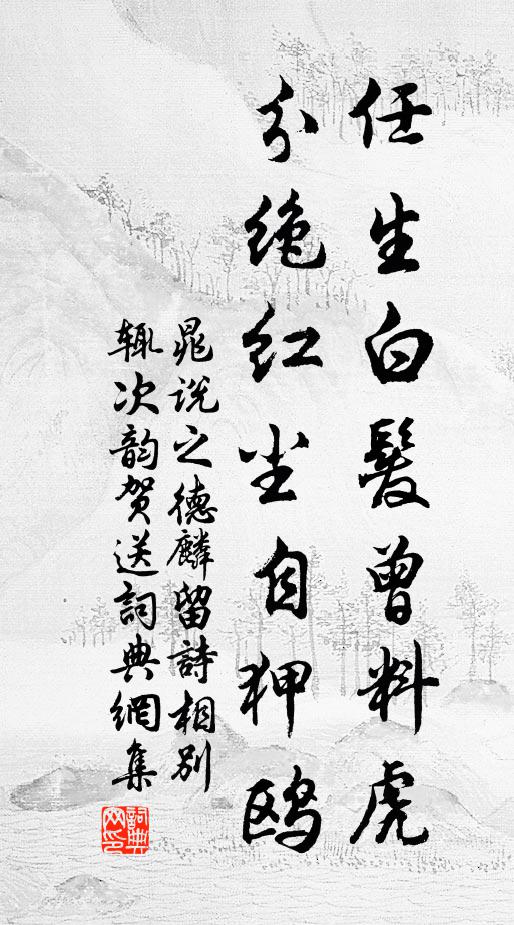 任生白髮曾料虎
分绝红尘自狎鸥
晁说之德麟留詩相别
辄次韵贺送詞典網集
詞典網印